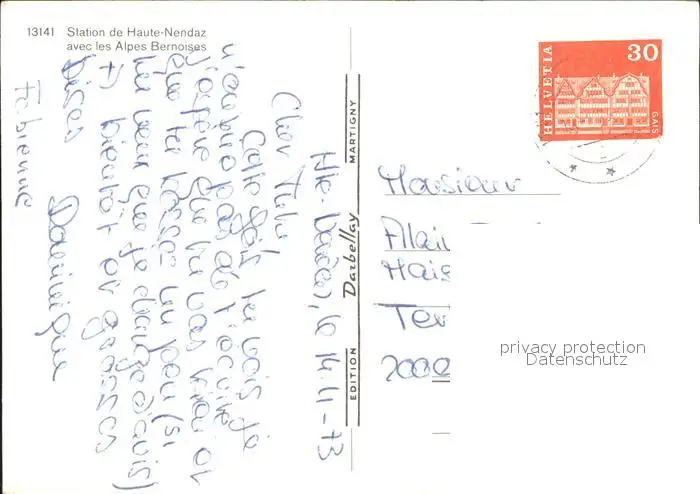 13141 Station de Haute-Nendaz
avec les Alpes Bernoises
Hte-Nendaz, le 14.11-73
Cher Titi
Cette fois tu vois je
n'oublie pas de t'écrire
j'espère que tu vas bien et
que tu bosses un peu (si
tu veux que je change d'avis)
à bientôt et grosses
bises Dominique
Fabienne
EDITION Darbellay MARTIGNY
HELVETIA 30
GAIS
Monsieur
Alain
Ter
2000
privacy protection
Datenschutz